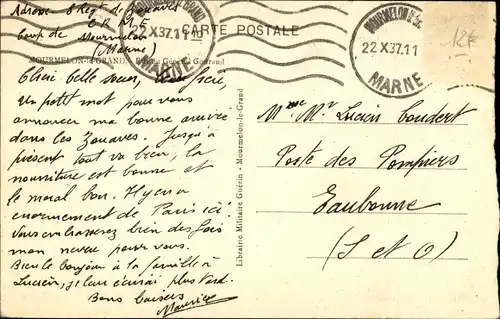 Adresse 8 Regt de Zouaves
C.R.M.E
Camp de Mourmelon
(Marne)
CARTE POSTALE
MOURMELON-le-GRAND
MARNE
22 X 37.11
MARNE
12F
MOURMELON-le-GRAND. Général Gouraud
Chère belle soeur, cher frère
Un petit mot pour vous
annoncer ma bonne arrivée
dans les Zouaves. Jusqu'à
présent tout va bien, la
nourriture est bonne et
le moral bon. Il y en a
énormément de Paris ici.
Vous embrasserez bien des fois
mon neveu pour vous.
Bien le bonjour à la famille à
Lucien, je leur écrirai plus tard.
Bons baisers
Maurice
Librairie Militaire Guérin - Mourmelon-le-Grand
Mme Mr Lucien Coudert
Poste des Pompiers
Eaubonne
(S et O)